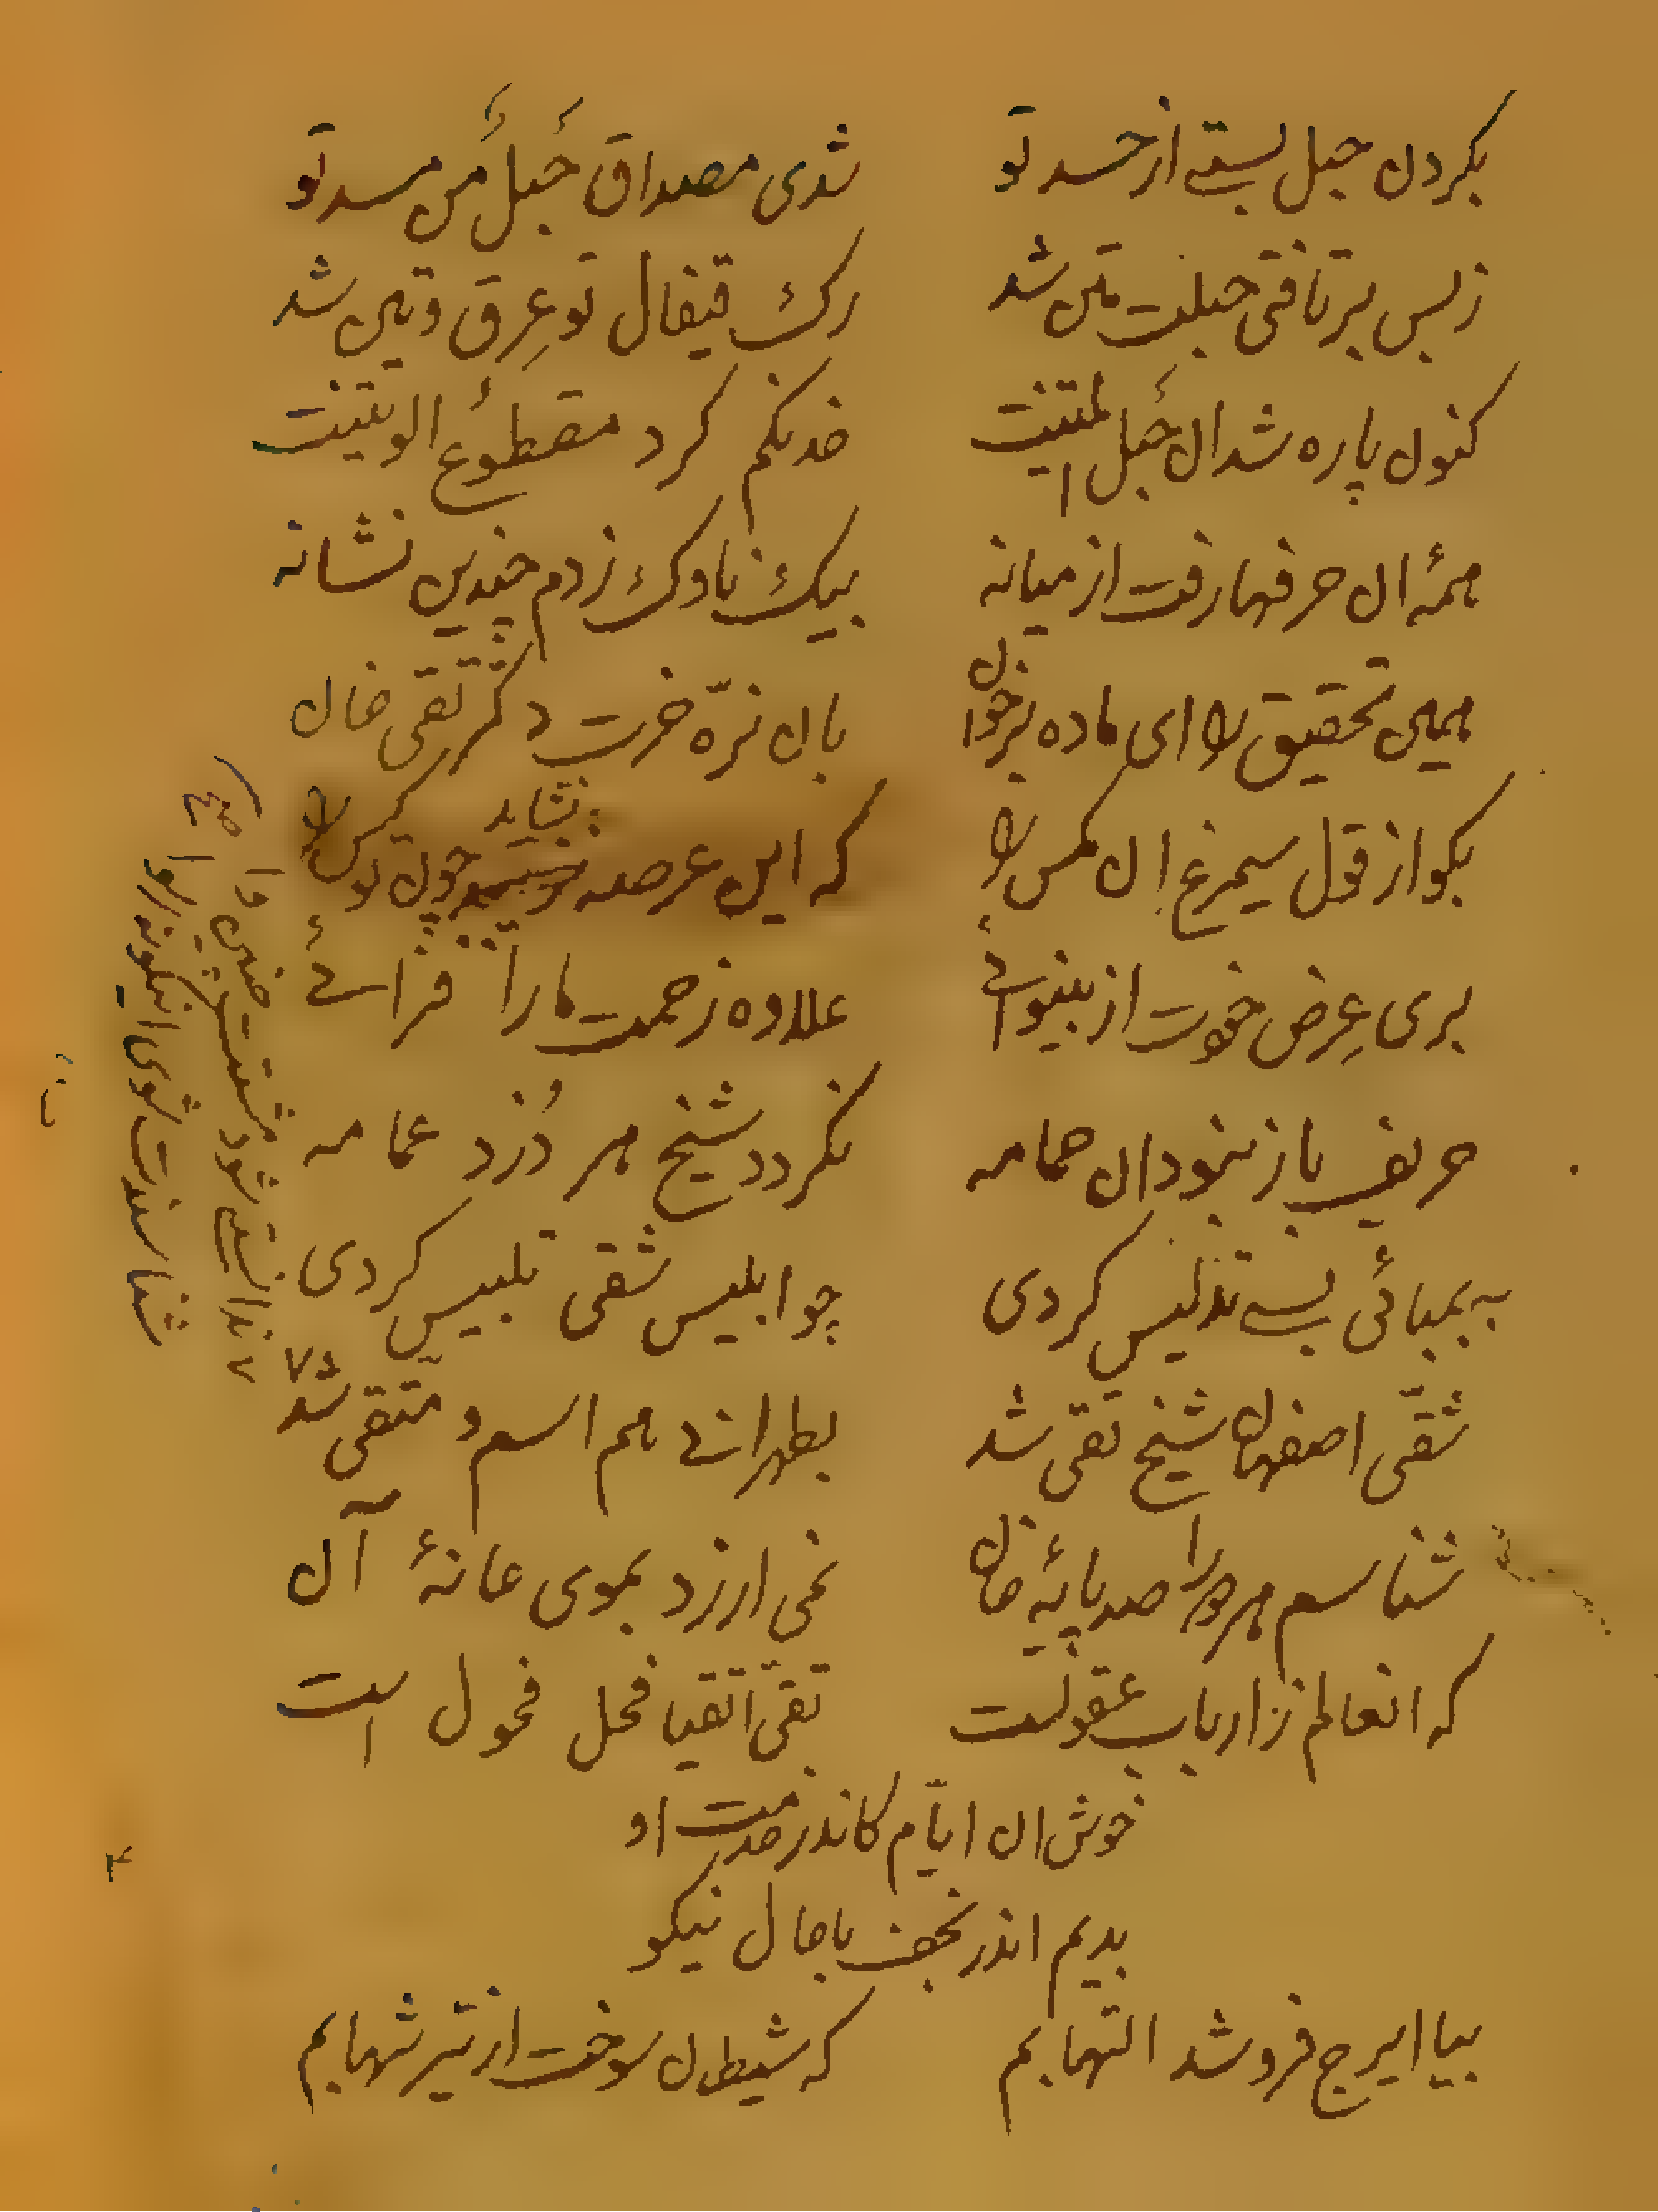 بکردن حبل بستی از حسد تو    شدی مصداق حَبلٌ مِن مسد تو
زبس برتافتی حبلت متین شد    رک قیفال تو عِرق وتین شد
کنون پاره شد ان حَبل المتینت    خدنکم کرد مقطوعُ الوتینت
همهٔ ان حرفها رفت از میانه    بیک ناوک زدم چندین نشانه
همین تحقیق را ای ماده برخوان    بان نرّه خرت دکتر تقی خان
بکو از قول سیمرغ ان مکس را    که این عرصه نشاید چون تو کس را
بری عِرض خودت از بینوائی    علاوه زحمت مارا فزائی
حریف باز نبود ان حمامه    نکردد شیخ هر دُزد عمامه
به بمبائی بسی تدلیس کردی    چو ابلیس شقی تلبیس کردی
شقّی اصفهان شیخ تقی شد    بطهرانی هم اسم و متّقی شد
شناسم هر دورا صد پایهٔ خان    نمی ارزد بموی عانهٔ آن
که انعالم ز ارباب عقولست    تقیّ اتقیا فحل فحول است
خوش ان ایّام کاندر خدمت او
بدیم اندر نجف با حال نیکو
بیا ایرج فروشد التهابم    که شیطان سوخت از تیر شهابم